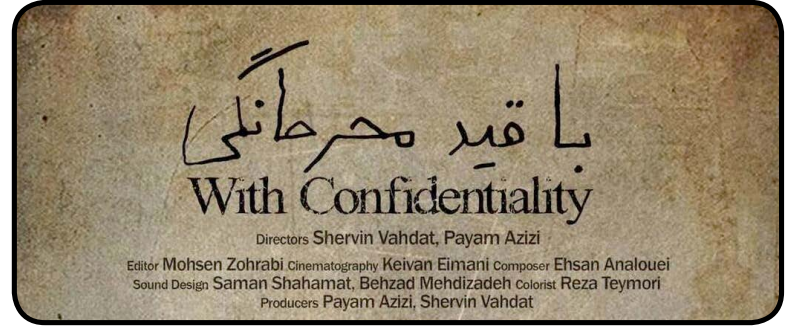 با قید محرمانگی
With Confidentiality
Directors Shervin Vahdat, Payam Azizi
Editor Mohsen Zohrabi Cinematography Keivan Eimani Composer Ehsan Analouei
Sound Design Saman Shahamat, Behzad Mehdizadeh Colorist Reza Teymori
Producers Payam Azizi, Shervin Vahdat